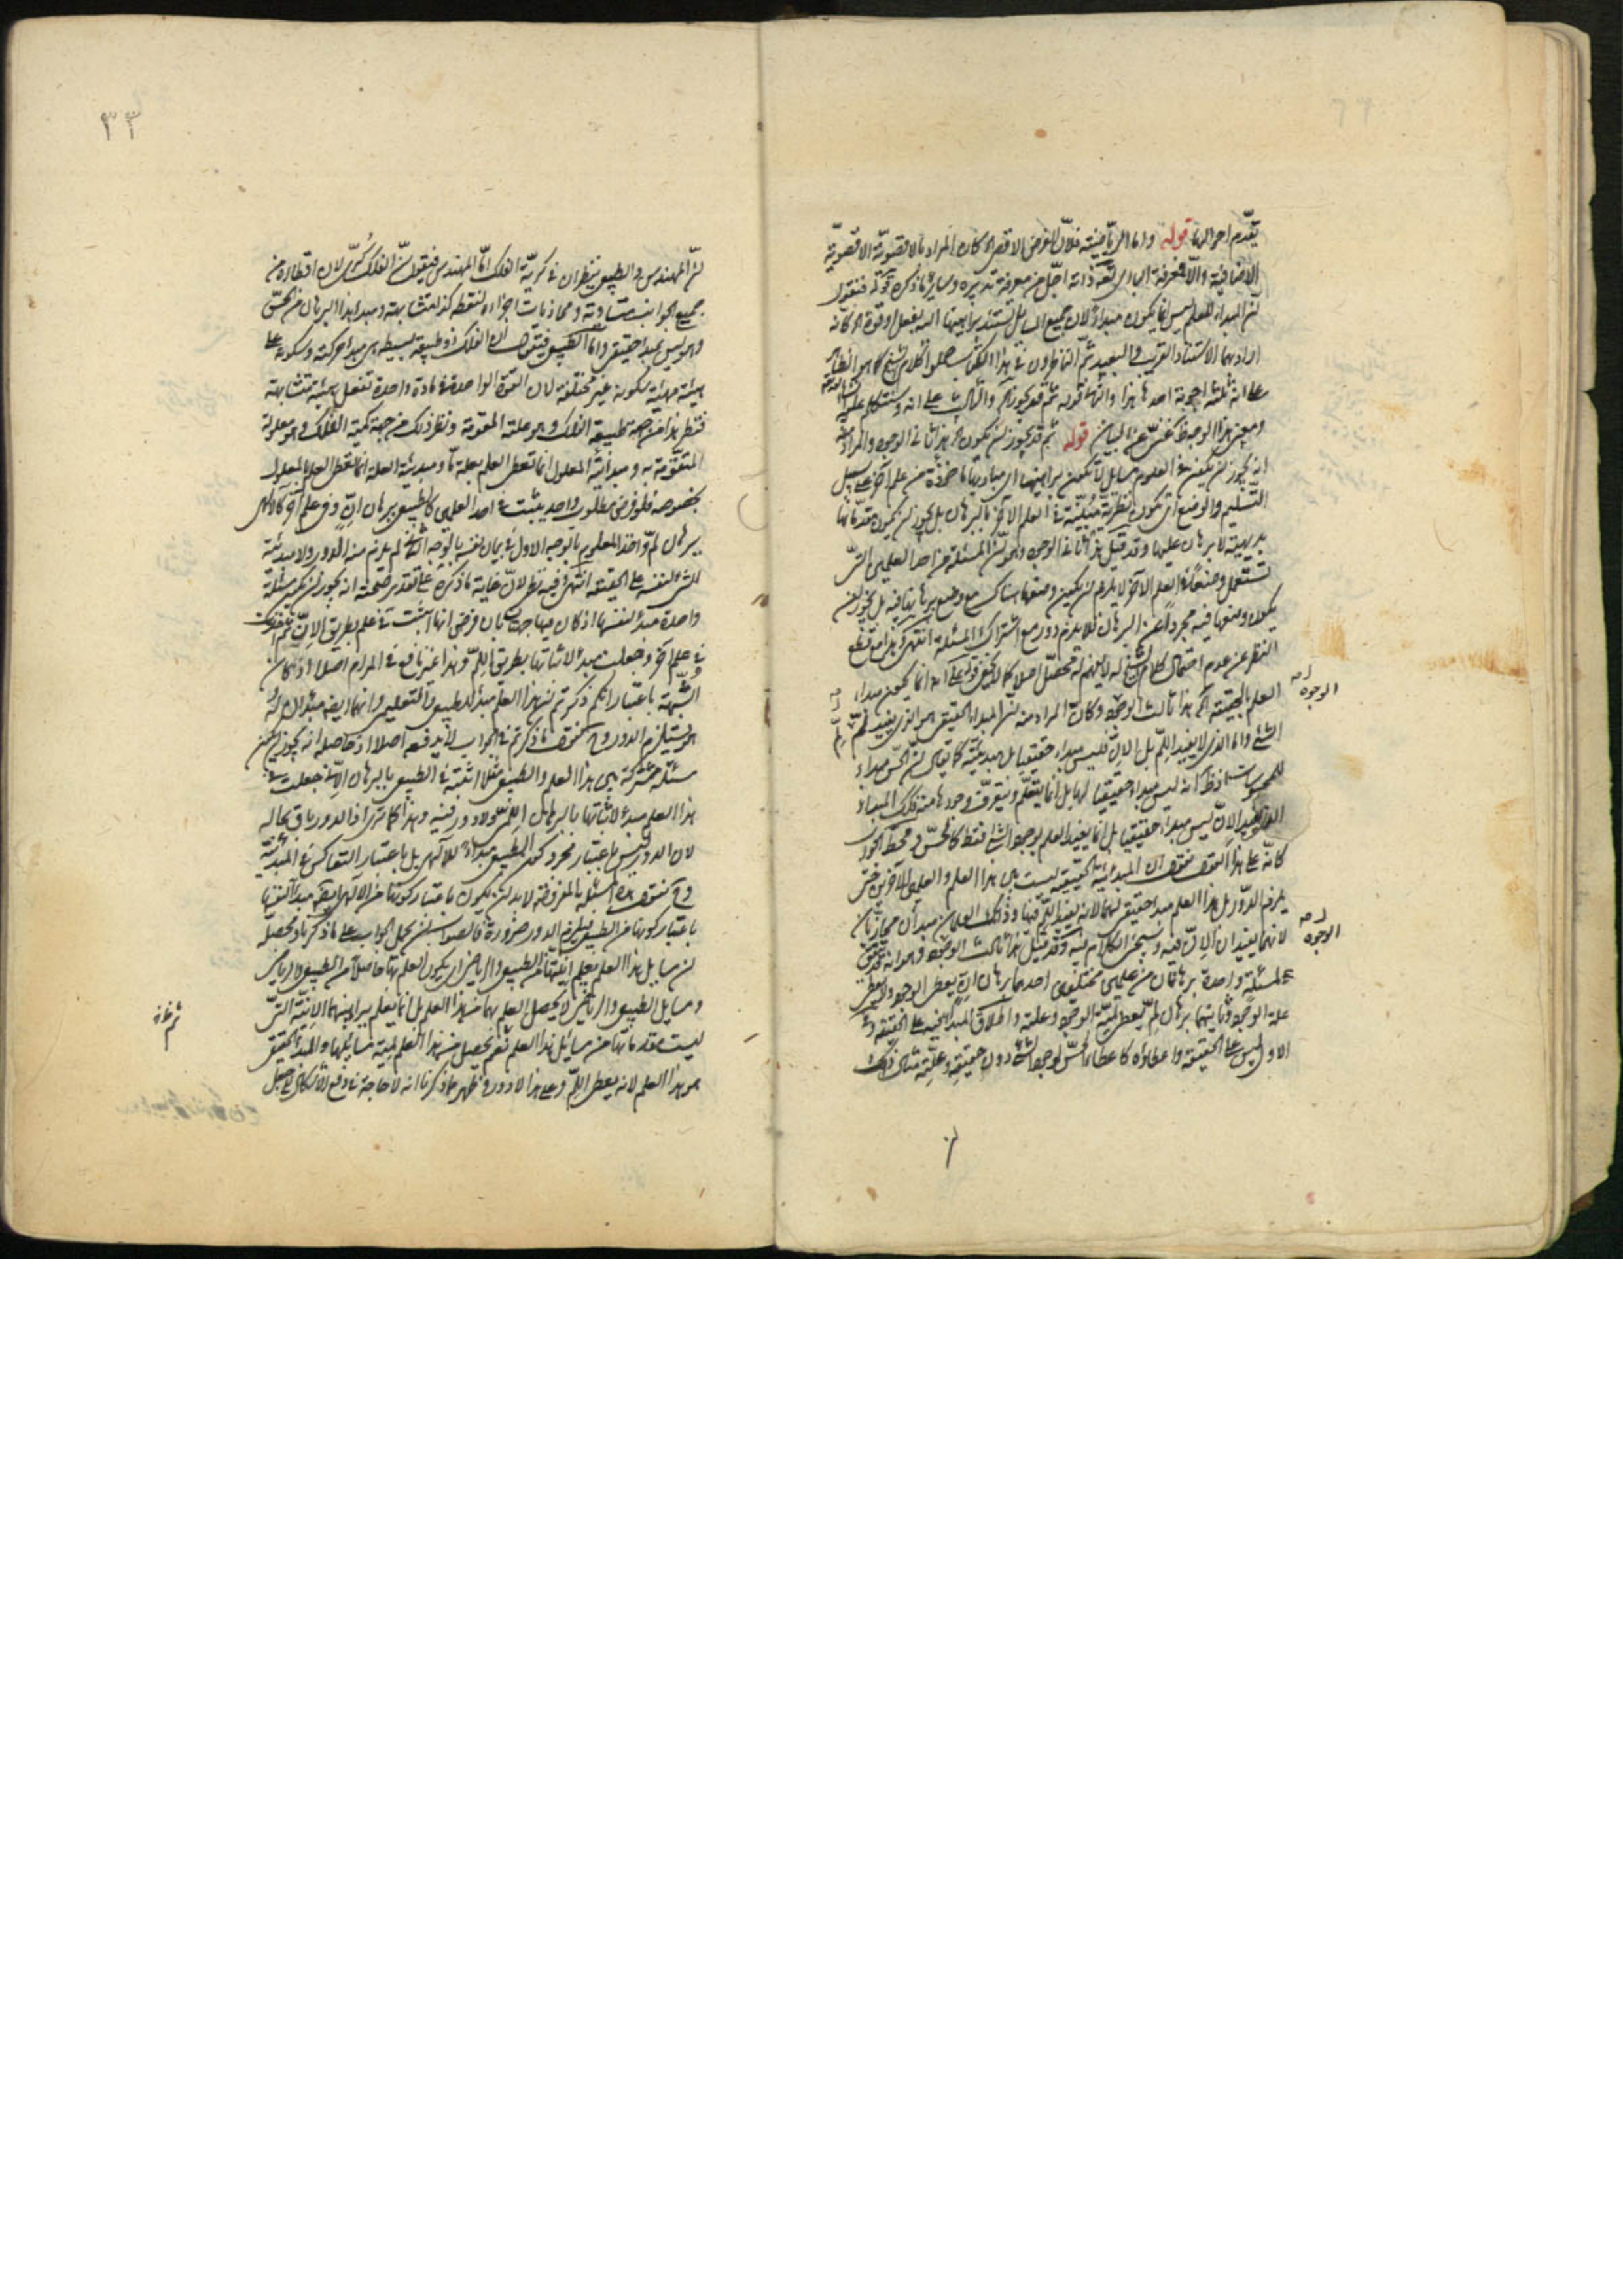 تقدم احوالها قوله واما الرياضية فلان الغرض الاقصى كان المراد بالاقصوية الاقصوية
الاضافية والا فمعرفة الباري تعالى ذاته اجل من معرفة تدبيره وساير ما ذكره قوله فنقول
ان المبدأ للعلم ليس انما يكون مبدأ لان جميع المسائل تستند براهينها اليه بفعل او قوة كانه
اراد بهما الاستناد القريب والبعيد ثم الناظرون في هذا الكتاب حملوا كلام الشيخ كما هو الظاهر
على انه ثلثة اجوبة احدها هذا وثانيها قوله ثم قد يجوز والثالث على انه
ومعنى هذا الوجه غني عن البيان قوله ثم قد يجوز ان يكون هذا ثاني الوجوه والمراد منه
انه يجوز ان يكون في العلوم مسايل لا تكون براهينها اي مباديها ماخوذة من علم آخر على سبيل
التسليم والوضع اي تكون نظرية مبينة في العلم الآخر بالبرهان بل يجوز ان يكون مقدماتها
بديهية لا برهان عليها وقد قيل هذا ثاني الوجوه وهو ان المسئلة من احد العلمين التي
تستعمل وضعا في العلم الآخر لا يلزم ان يكون وضعها هناك مع وضع برهانها فيه بل يجوز ان
يكون وضعها فيه مجردا عن البرهان فلا يلزم دور مع اشتراك المسئلة انتهى هذا مع قطع
النظر عن عدم احتمال كلام الشيخ له لا يفهم له محصل اصلا كما لا يخفى قوله على انه انما يكون مبداء
العلم بالحقيقة هذا ثالث الوجوه وكان المراد منه ان المبدأ الحقيقي هو الذي يفيد لم
الشئ واما الذي لا يفيد اللم بل الان فليس مبداء حقيقيا بل مبدئية كما يقال ان الحس مبداء
للمحسوسات اذ ظاهر انه ليس مبداء حقيقيا لها بل انما يتعلم ويتعرف وجودها منه فذلك المبداء
الان ليس مبداء حقيقيا بل انما يفيد العلم بوجود الشئ فقط كالحس
كانه على هذا المبدئية الحقيقية ليست بين هذا العلم والعلمين الآخرين حتى
يلزم الدور بل هذا العلم مبدأ حقيقي لهما لانه يفيد اللم فيها وذانك العلمان مبدأن مجازيان
لانهما يفيدان الان فيه وسيجئ الكلام فيه وقد قيل هذا ثالث الوجوه وهو انه قد يتفق
لمسئلة واحدة برهانان من علمين مختلفين احدهما برهان ان يعطي الوجود ولا يعطي
علة الوجود وثانيهما برهان لم يعطي لمية الوجود وعلته واطلاق المبدأ عليه على الحقيقة و
الاول ليس على الحقيقة واعطاؤه كاعطاء الحس لوجود الشئ دون حقيقته وعليته مثال ذلك
الوجوه
الوجوه
٣٣
ان المهندس والطبيعي ينظران في كرية الفلك اما المهندس فيقول ان الفلك كري لان اقطاره من
جميع الجوانب متساوية ومحاذيات اجزاءه لنقطة كذا متشابهة ومبدأ هذا البرهان من الحس
وهو ليس بمبدأ حقيقي واما الطبيعي فيقول ان الفلك ذو طبيعة بسيطة هي مبدأ حركته وسكونه على
هيئة غير مختلفة لان القوة الواحدة في مادة واحدة تفعل هيئة متشابهة
فنظر هذا من جهة طبيعة الفلك وهو علته المقومة ونظر ذلك من جهة كمية الفلك وهو معلولة
المتقومة به ومبدئية المعلول انما تعطي العلم بعلة ما ومبدئية العلة انما تعطي العلم بالمعلول
بخصوصه فلو فرض مطلوب واحد يثبت في احد العلمين كالطبيعي ببرهان ان وفي علم آخر كالالهي
ببرهان لم واخذ المعلوم بالوجه الاول في بيان نفسه بالوجه الثاني لم يلزم منه الدور ولا مبدئية
الشئ لنفسه على الحقيقة انتهى وفيه نظر لان غاية ما ذكره على تقدير صحته انه يجوز ان يكون مسئلة
واحدة مبدأ لنفسها اذ كان فيها جهتان بان فرض انها اثبتت في علم بطريق الان ثم
في علم آخر وجعلت مبدأ لاثباتها بطريق اللم وهذا غير نافع في المرام اصلا اذ كان
الشبهة باعتبار انكم ذكرتم ان هذا العلم مبدأ للطبيعي والتعليمي وانهما ايضا مبدأ له
وهو يستلزم الدور وما ذكرتم في الجواب لا يدفعه اصلا اذ حاصله انه يجوز ان يكون
مسئلة مشتركة بين هذا العلم والطبيعي مثلا اثبتت في الطبيعي بالبرهان الاني وجعلت في
هذا العلم مبدأ لاثباتها بالبرهان اللمي ولا دور فيه وهذا كما ترى اذ الدور باق بحاله
لان الدور ليس باعتبار مجرد كون الطبيعي مبداء للالهي بل باعتبار التعاكس في المبدئية
وح نقول هذه المسئلة المفروضة لا بد ان يكون باعتبار كونها من الالهي ايضا مبدأ لنفسها
باعتبار كونها من الطبيعي فيلزم الدور ضرورة فالصواب ان يحمل الجواب على ما ذكرنا ومحصله
ان مسايل هذا العلم يعلم انيتها من الطبيعي والرياضي اي يكون العلم بها حاصلا من الطبيعي والرياضي
ومسايل الطبيعي والرياضي لا يحصل العلم بهما من هذا العلم بل انما يعلم ببراهينهما الانية التي
ليست مقدماتها من مسائل هذا العلم نعم يحصل من هذا العلم لمية مسائلها والمبدأ الحقيقي
هو هذا العلم لانه يعطي اللم وعلى هذا لا دور وظهر مما ذكرنا انه لا حاجة في دفع الاشكال الى